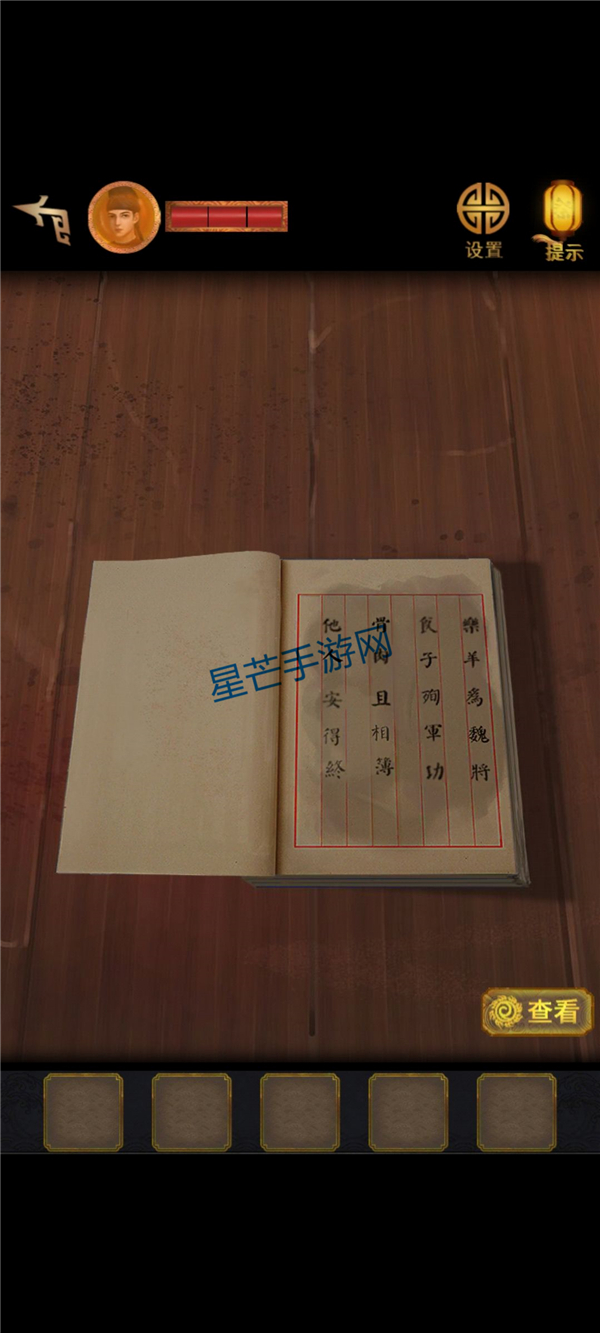 设置
提示
樂羊為魏將
食子殉軍功
骨肉且相薄
他人安得終
星芒手游网
查看